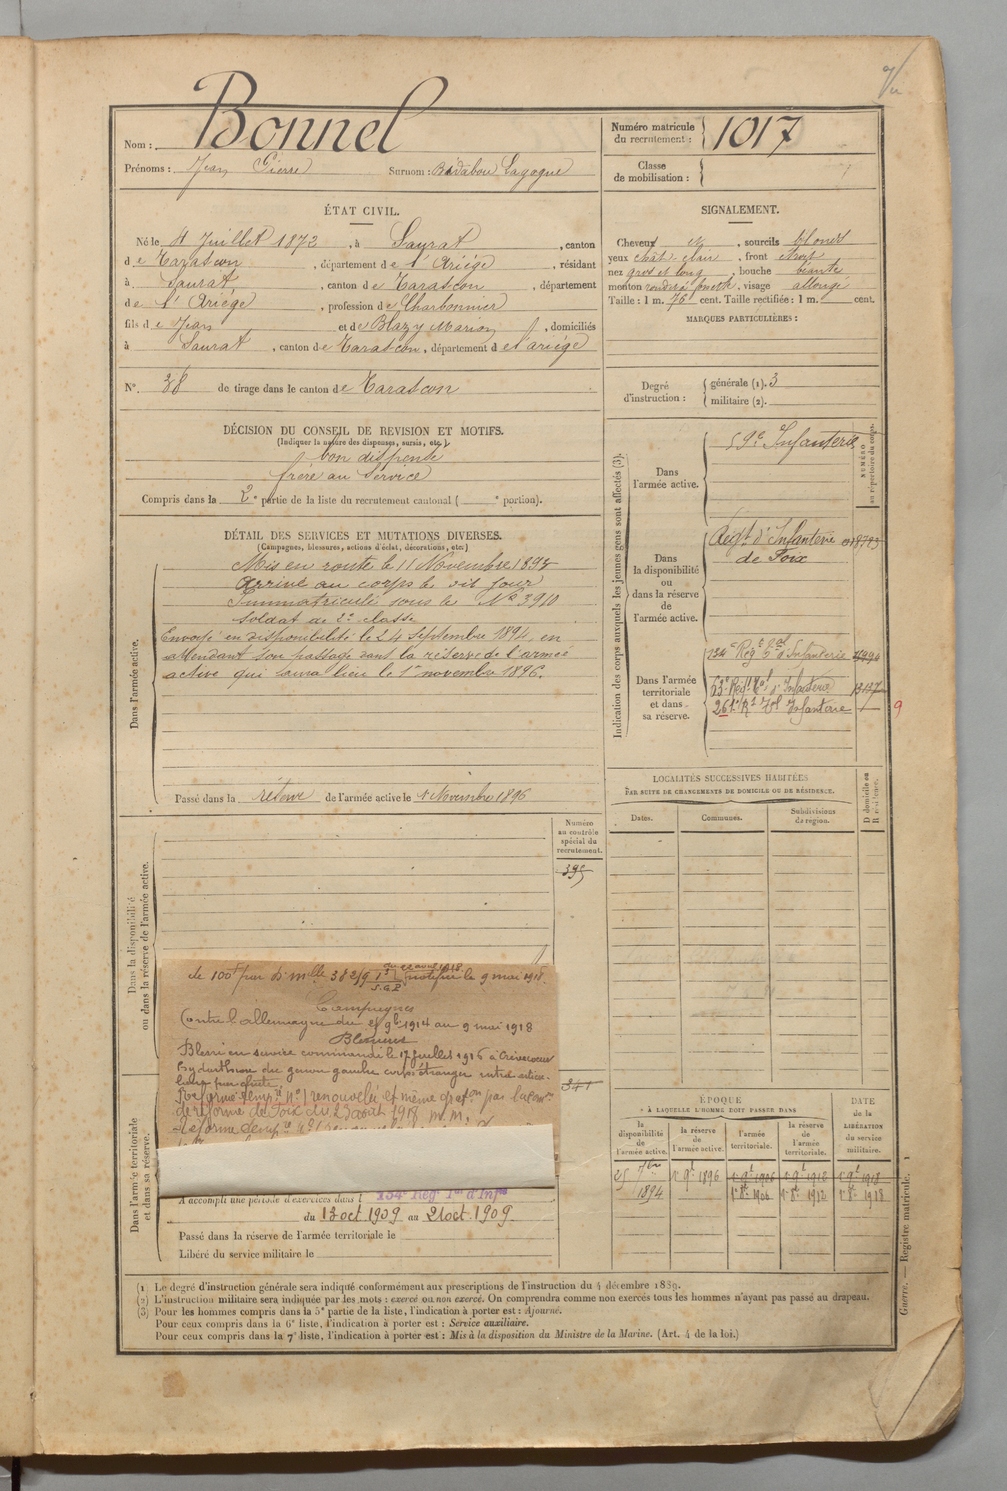 Nom : Bonnel
Prénoms : Jean Pierre Surnom : Bidabou Lagogue
Numéro matricule du recrutement : 1017
Classe de mobilisation :
ÉTAT CIVIL.
Né le 4 Juillet 1872, à Saurat, canton
de Tarascon, département de l'Ariège, résidant
à Saurat, canton de Tarascon, département
de l'Ariège, profession de Charbonnier
fils de Jean et de Blazy Marion, domiciliés
à Saurat, canton de Tarascon, département de l'ariège
N°. 38 de tirage dans le canton de Tarascon
SIGNALEMENT.
Cheveux et, sourcils blonds
yeux chât. clair, front étroit
nez gros et long, bouche béante
menton rond à fossette, visage allongé
Taille : 1 m. 76 cent. Taille rectifiée : 1 m. cent.
MARQUES PARTICULIÈRES :
Degré d'instruction : générale (1). 3
militaire (2).
DÉCISION DU CONSEIL DE REVISION ET MOTIFS.
(Indiquer la nature des dispenses, sursis, etc.)
bon dispensé
frère au service
Compris dans la 2e partie de la liste du recrutement cantonal ( e portion).
DÉTAIL DES SERVICES ET MUTATIONS DIVERSES.
(Campagnes, blessures, actions d'éclat, décorations, etc.)
Dans l'armée active.
Mis en route le 11 Novembre 1893
Arrivé au corps le dit jour
Immatriculé sous le No 3910
soldat de 2e classe
Envoyé en disponibilité le 24 Septembre 1894, en
attendant son passage dans la réserve de l'armée
active qui aura lieu le 1er novembre 1896.
Passé dans la réserve de l'armée active le 1 Novembre 1896
Indication des corps auxquels les jeunes gens sont affectés (3).
NUMÉRO au répertoire du corps.
Dans l'armée active.
59e Infanterie
Dans la disponibilité ou dans la réserve de l'armée active.
Régt d'Infanterie
de Foix
Dans l'armée territoriale et dans sa réserve.
134e Régt Tal d'Infanterie
63e Régt Tal d'Infanterie
261e Rt Tal Infanterie
9
LOCALITÉS SUCCESSIVES HABITÉES
PAR SUITE DE CHANGEMENTS DE DOMICILE OU DE RÉSIDENCE.
Dates. Communes. Subdivisions de région. D domicile ou R résidence.
Dans la disponibilité ou dans la réserve de l'armée active.
Numéro au contrôle spécial du recrutement.
395
341
de 100f par Don mlle 382/9 du 22 avril 1918 notifié le 9 mai 1918.
S.G.P.
Campagnes
Contre l'allemagne du 9bre 1914 au 9 mai 1918
Blessures
Blessé en service commandé le 17 juillet 1916 à Crèvecoeur
hydarthrose du genou gauche corps étranger intra articu-
Réforme tempre no 1 renouvelée et même graton par la comon
de réforme de Foix du 23 août 1918
Réforme tempre
Dans l'armée territoriale et dans sa réserve.
A accompli une période d'exercices dans l 134e Régt Tal d'Infie
du 13 oct 1909 au 21 oct. 1909.
Passé dans la réserve de l'armée territoriale le
Libéré du service militaire le
ÉPOQUE
À LAQUELLE L'HOMME DOIT PASSER DANS
la disponibilité de l'armée active. la réserve de l'armée active. l'armée territoriale. la réserve de l'armée territoriale.
DATE de la LIBÉRATION du service militaire.
7bre 1894 1er 9bre 1896 1er 9bre 1906 1er 9bre 1912 1er 9bre 1918
1er 8bre 1906 1er 8bre 1912 1er 8bre 1918
Guerre. — Registre matricule. 1
(1) Le degré d'instruction générale sera indiqué conformément aux prescriptions de l'instruction du 4 décembre 1889.
(2) L'instruction militaire sera indiquée par les mots : exercé ou non exercé. On comprendra comme non exercés tous les hommes n'ayant pas passé au drapeau.
(3) Pour les hommes compris dans la 5e partie de la liste, l'indication à porter est : Ajourné.
Pour ceux compris dans la 6e liste, l'indication à porter est : Service auxiliaire.
Pour ceux compris dans la 7e liste, l'indication à porter est : Mis à la disposition du Ministre de la Marine. (Art. 4 de la loi.)